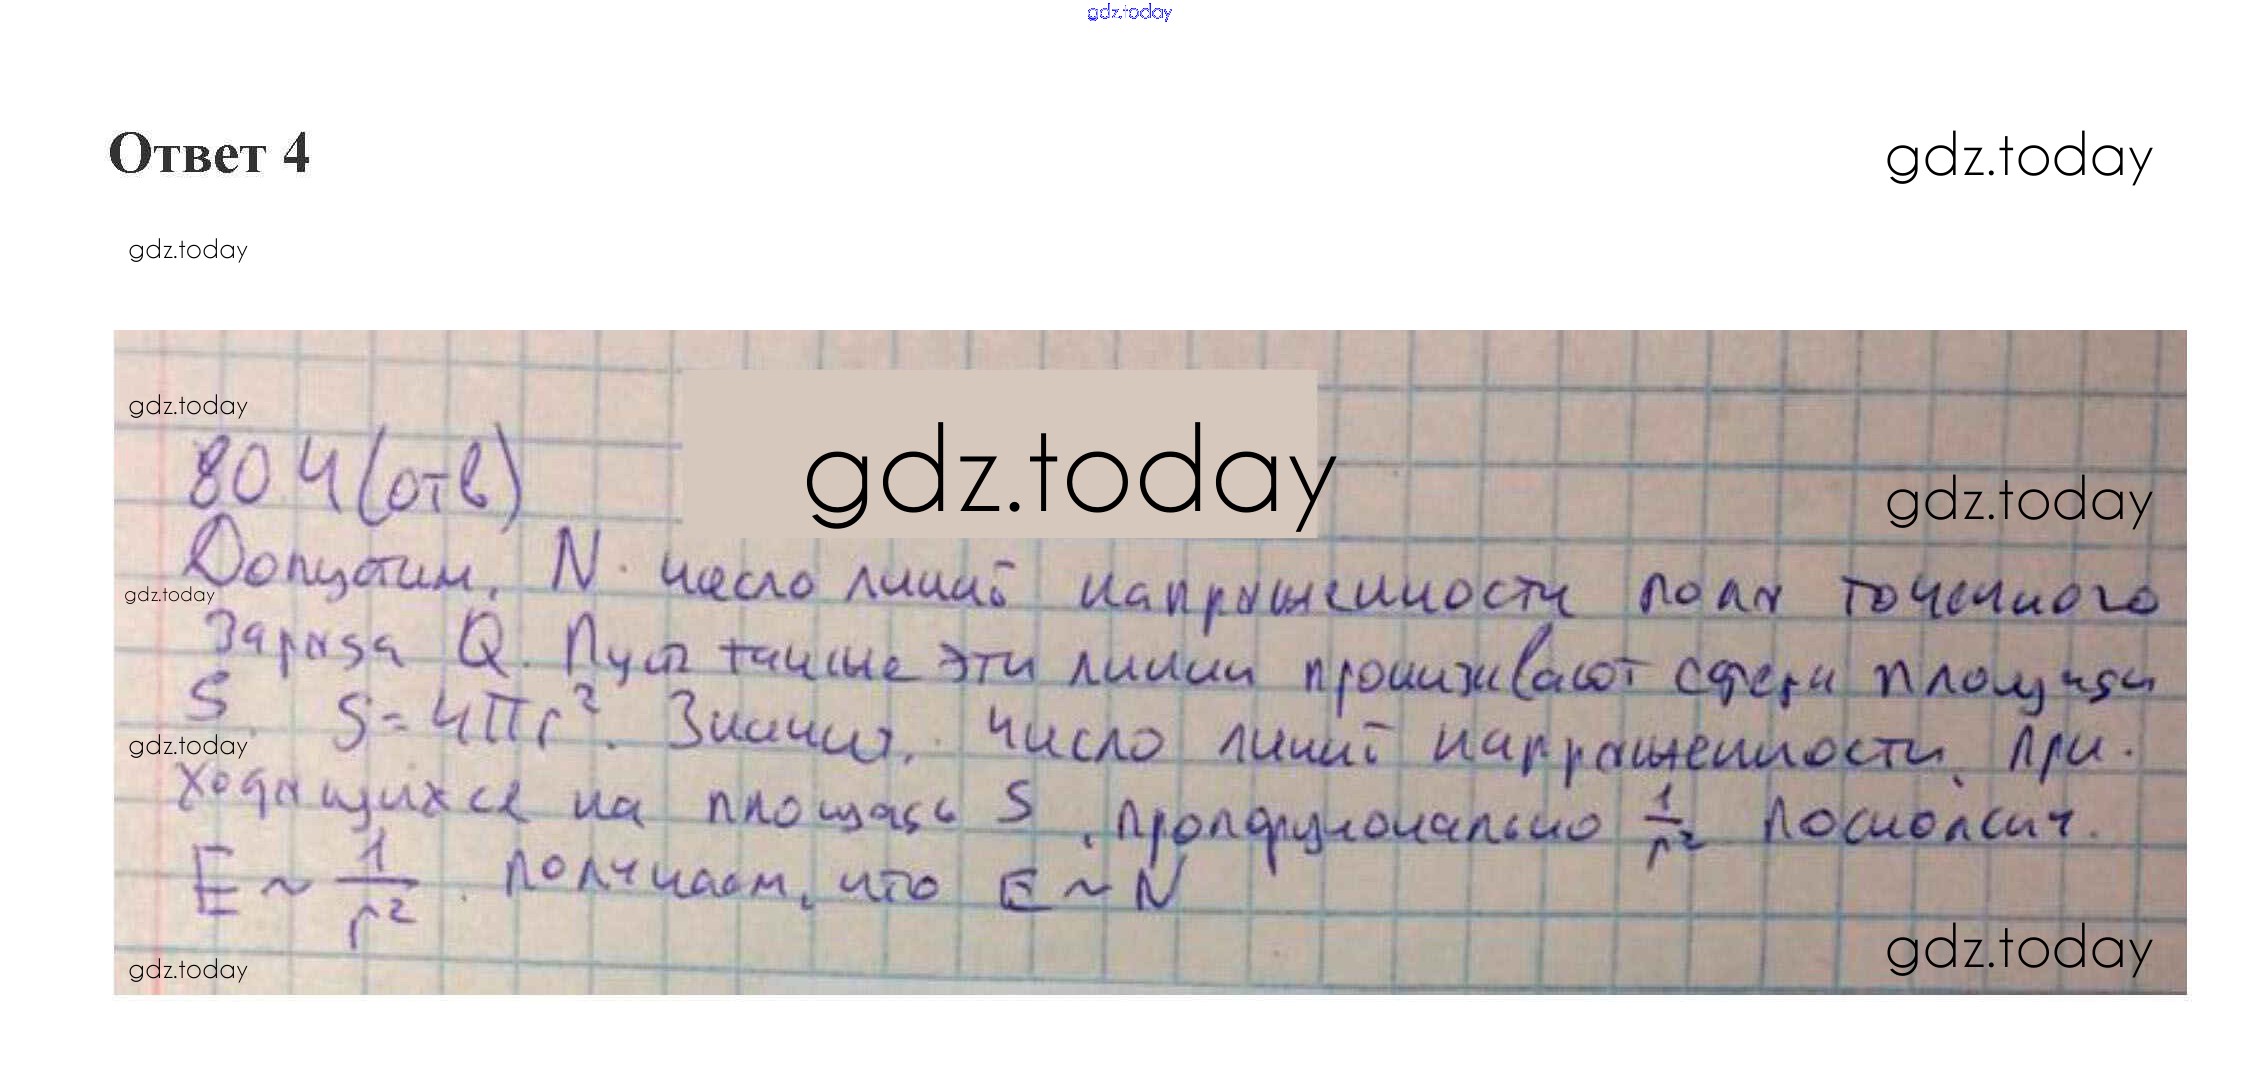 gdz.today
Ответ 4
gdz.today
gdz.today
gdz.today
gdz.today
80 4 (отв)
gdz.today
Допустим, N число линий напряженности поля точечного
gdz.today
заряда Q. Пусть также эти линии пронизывают сферу площади
S. S = 4πr². Значит, число линий напряженности, при-
gdz.today
ходящихся на площадь S, пропорционально 1/r² поскольку
E ~ 1/r². получаем, что E ~ N
gdz.today
gdz.today